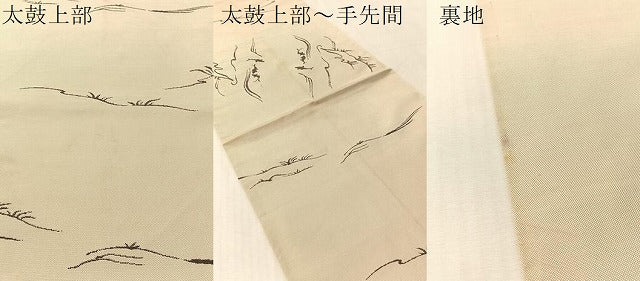 太鼓上部
太鼓上部～手先間
裏地